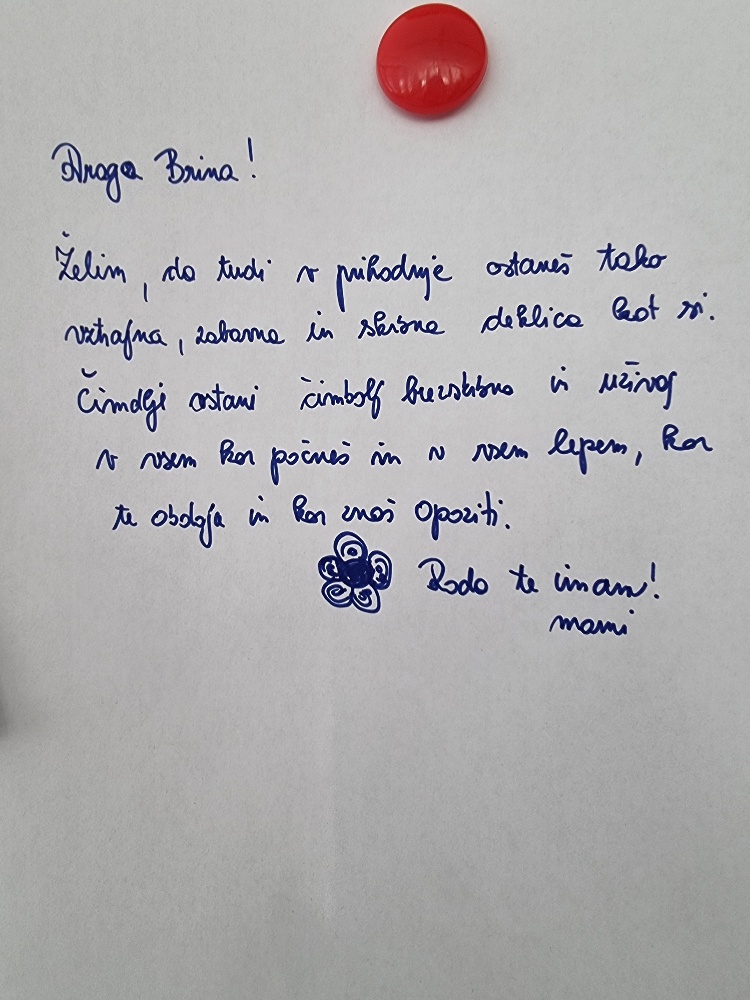 Draga Brina!
Želim, da tudi v prihodnje ostaneš tako
vztrajna, zabavna in skrbna deklica kot si.
Čimdlje ostani čimbolj brezskrbna in uživaj
v vsem kar počneš in v vsem lepem, kar
te obdaja in kar znaš opaziti.
Rada te imam!
mami